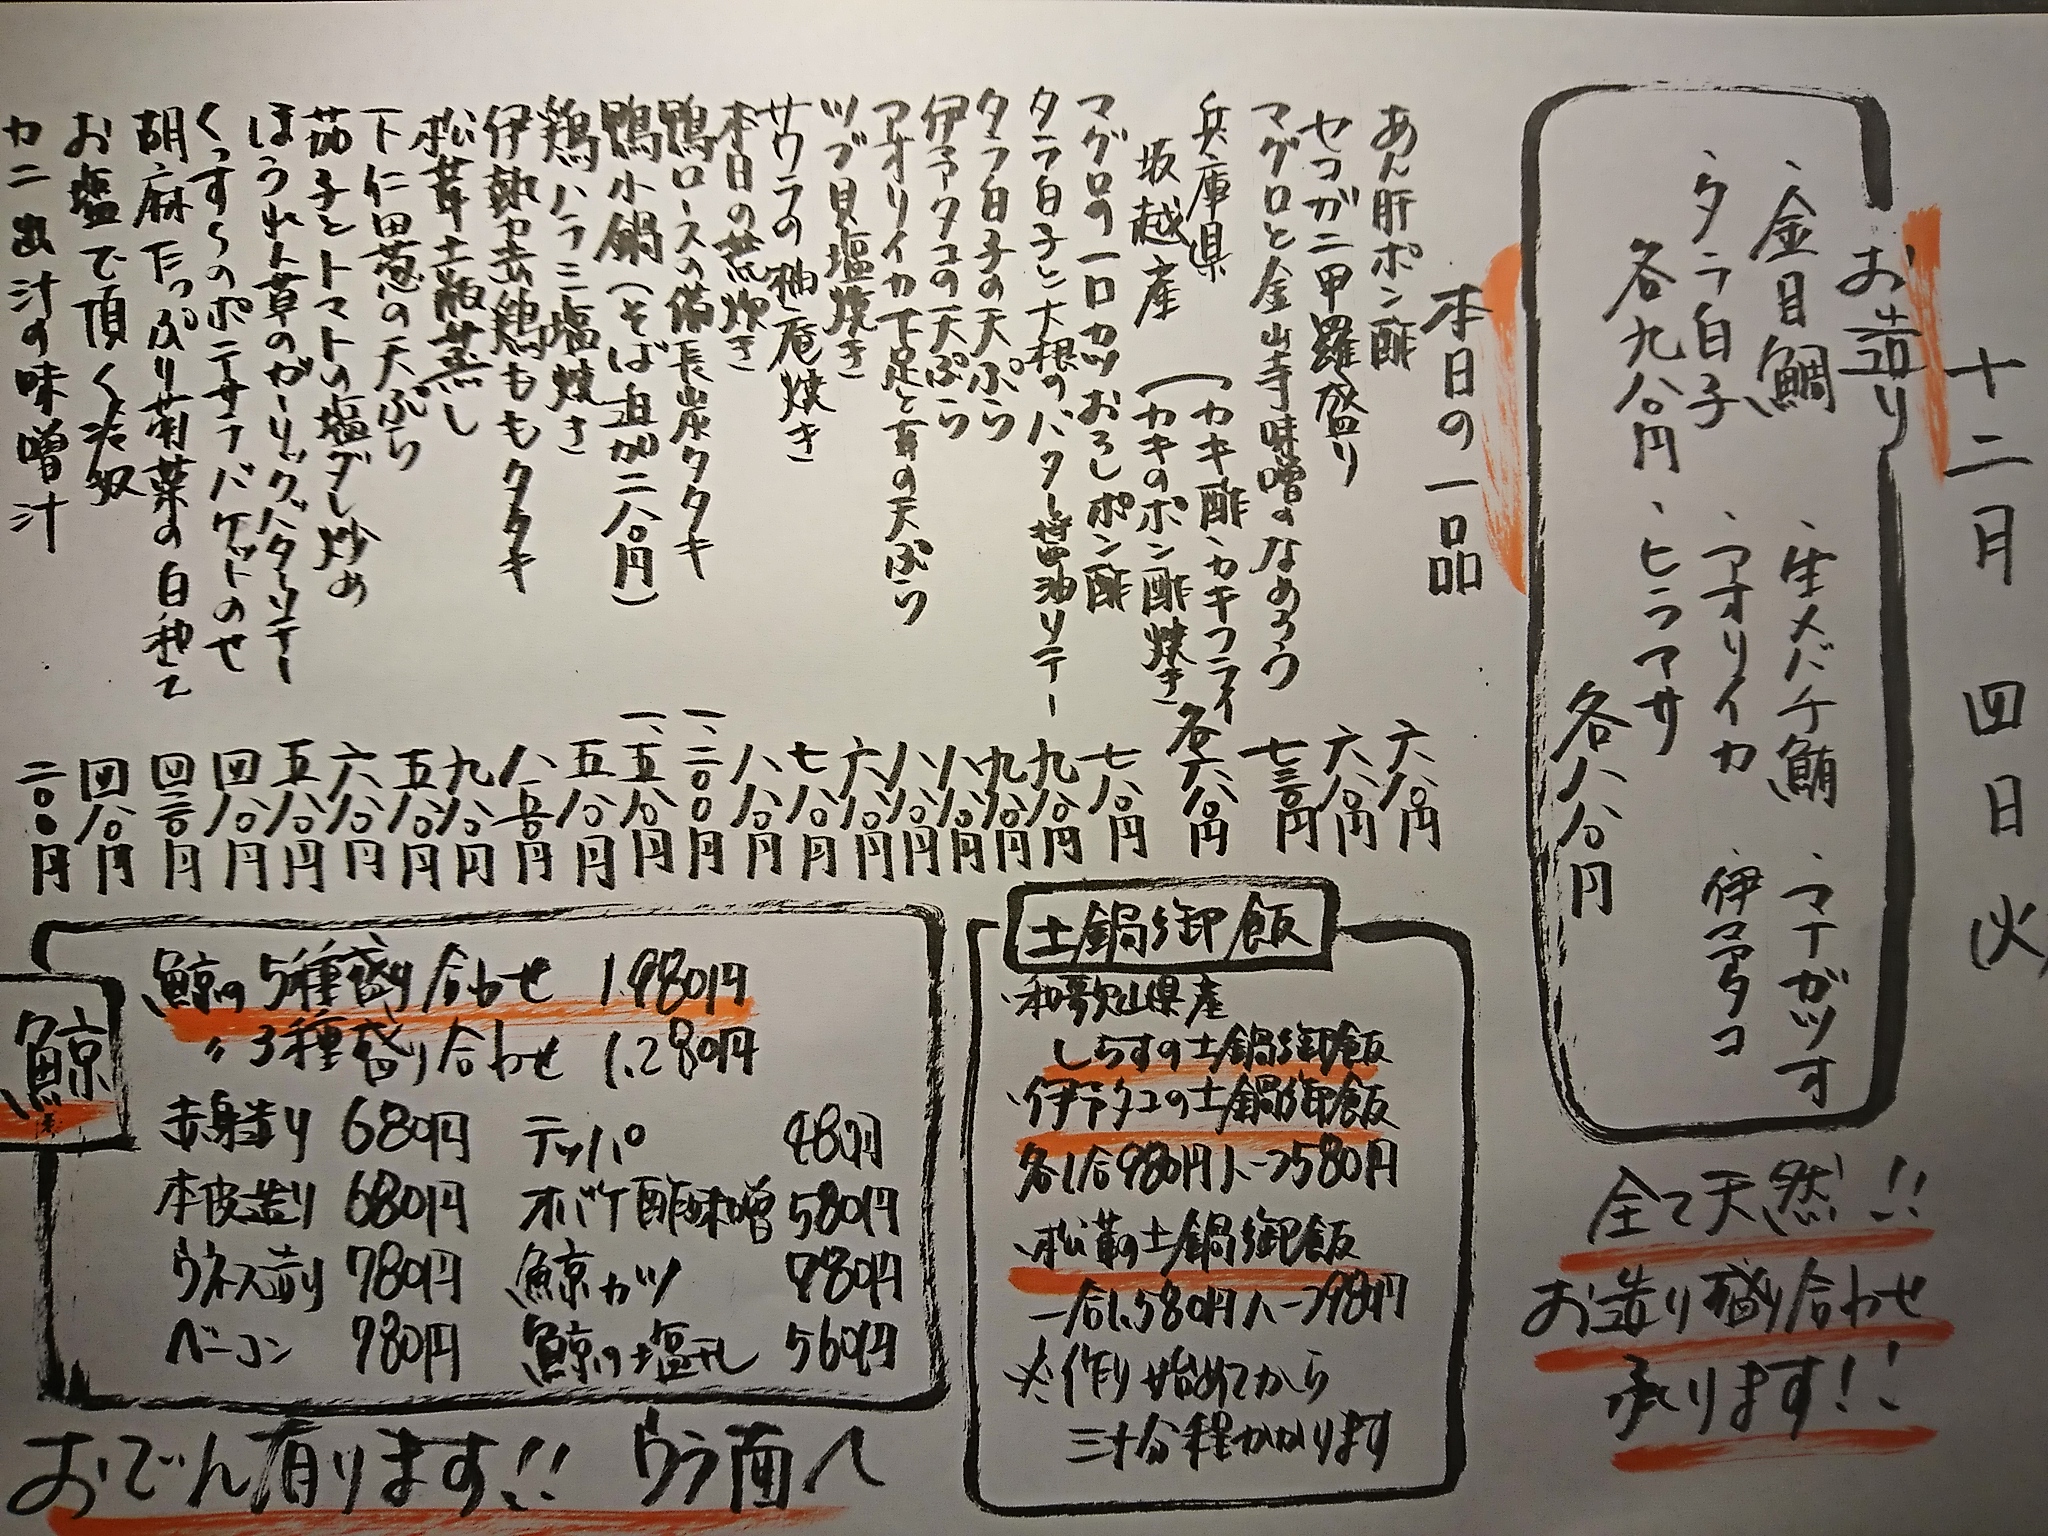 十二月四日(火)
お造り
、金目鯛
、生メバチ鮪
、マナガツオ
、タラ白子
、アオリイカ
、伊予タコ
各九八〇円
、ヒラマサ
各八八〇円
全て天然!!
お造り盛り合わせ
承ります!!
本日の一品
あん肝ポン酢 六八〇円
セコガニ甲羅盛り 六八〇円
マグロと金山寺味噌のなめろう 七三〇円
兵庫県
坂越産
(カキ酢、カキフライ
(カキのポン酢焼き
各六八〇円
マグロの一口カツおろしポン酢 七八〇円
タラ白子と大根のバター醤油ソテー 九八〇円
タラ白子の天ぷら 九八〇円
伊予タコの天ぷら 八八〇円
アオリイカ下足と茸の天ぷら 八八〇円
ツブ貝塩焼き 六八〇円
サワラの柚庵焼き 七八〇円
本日の荒炊き 八八〇円
鴨ロースの備長炭タタキ 一、二〇〇円
鴨小鍋(そば追加二八〇円) 一、五八〇円
鶏ハラミ塩焼き 五八〇円
伊勢赤鶏ももタタキ 八五〇円
松茸土瓶蒸し 九八〇円
下仁田葱の天ぷら 五八〇円
茄子とトマトの塩ダレ炒め 六八〇円
ほうれん草のガーリックバターソテー 五八〇円
くんずらのポテサラバケットのせ 四八〇円
胡麻たっぷり菊菜の白和え 四三〇円
お塩で頂く冷奴 四八〇円
カニ出汁の味噌汁 二〇〇円
土鍋御飯
、和歌山県産
しらすの土鍋御飯
、伊予タコの土鍋御飯
各1合980円ハーフ580円
、松茸の土鍋御飯
一合1,580円ハーフ980円
※作り始めてから
三十分程かかります
鯨
鯨の5種盛り合わせ 1.980円
〃3種盛り合わせ 1.280円
赤身造り 680円 テッパ 480円
本皮造り 680円 オバケ酢味噌 580円
ウネス造り 780円 鯨カツ 980円
ベーコン 780円 鯨の塩干し 560円
おでん有ります!! ウラ面へ